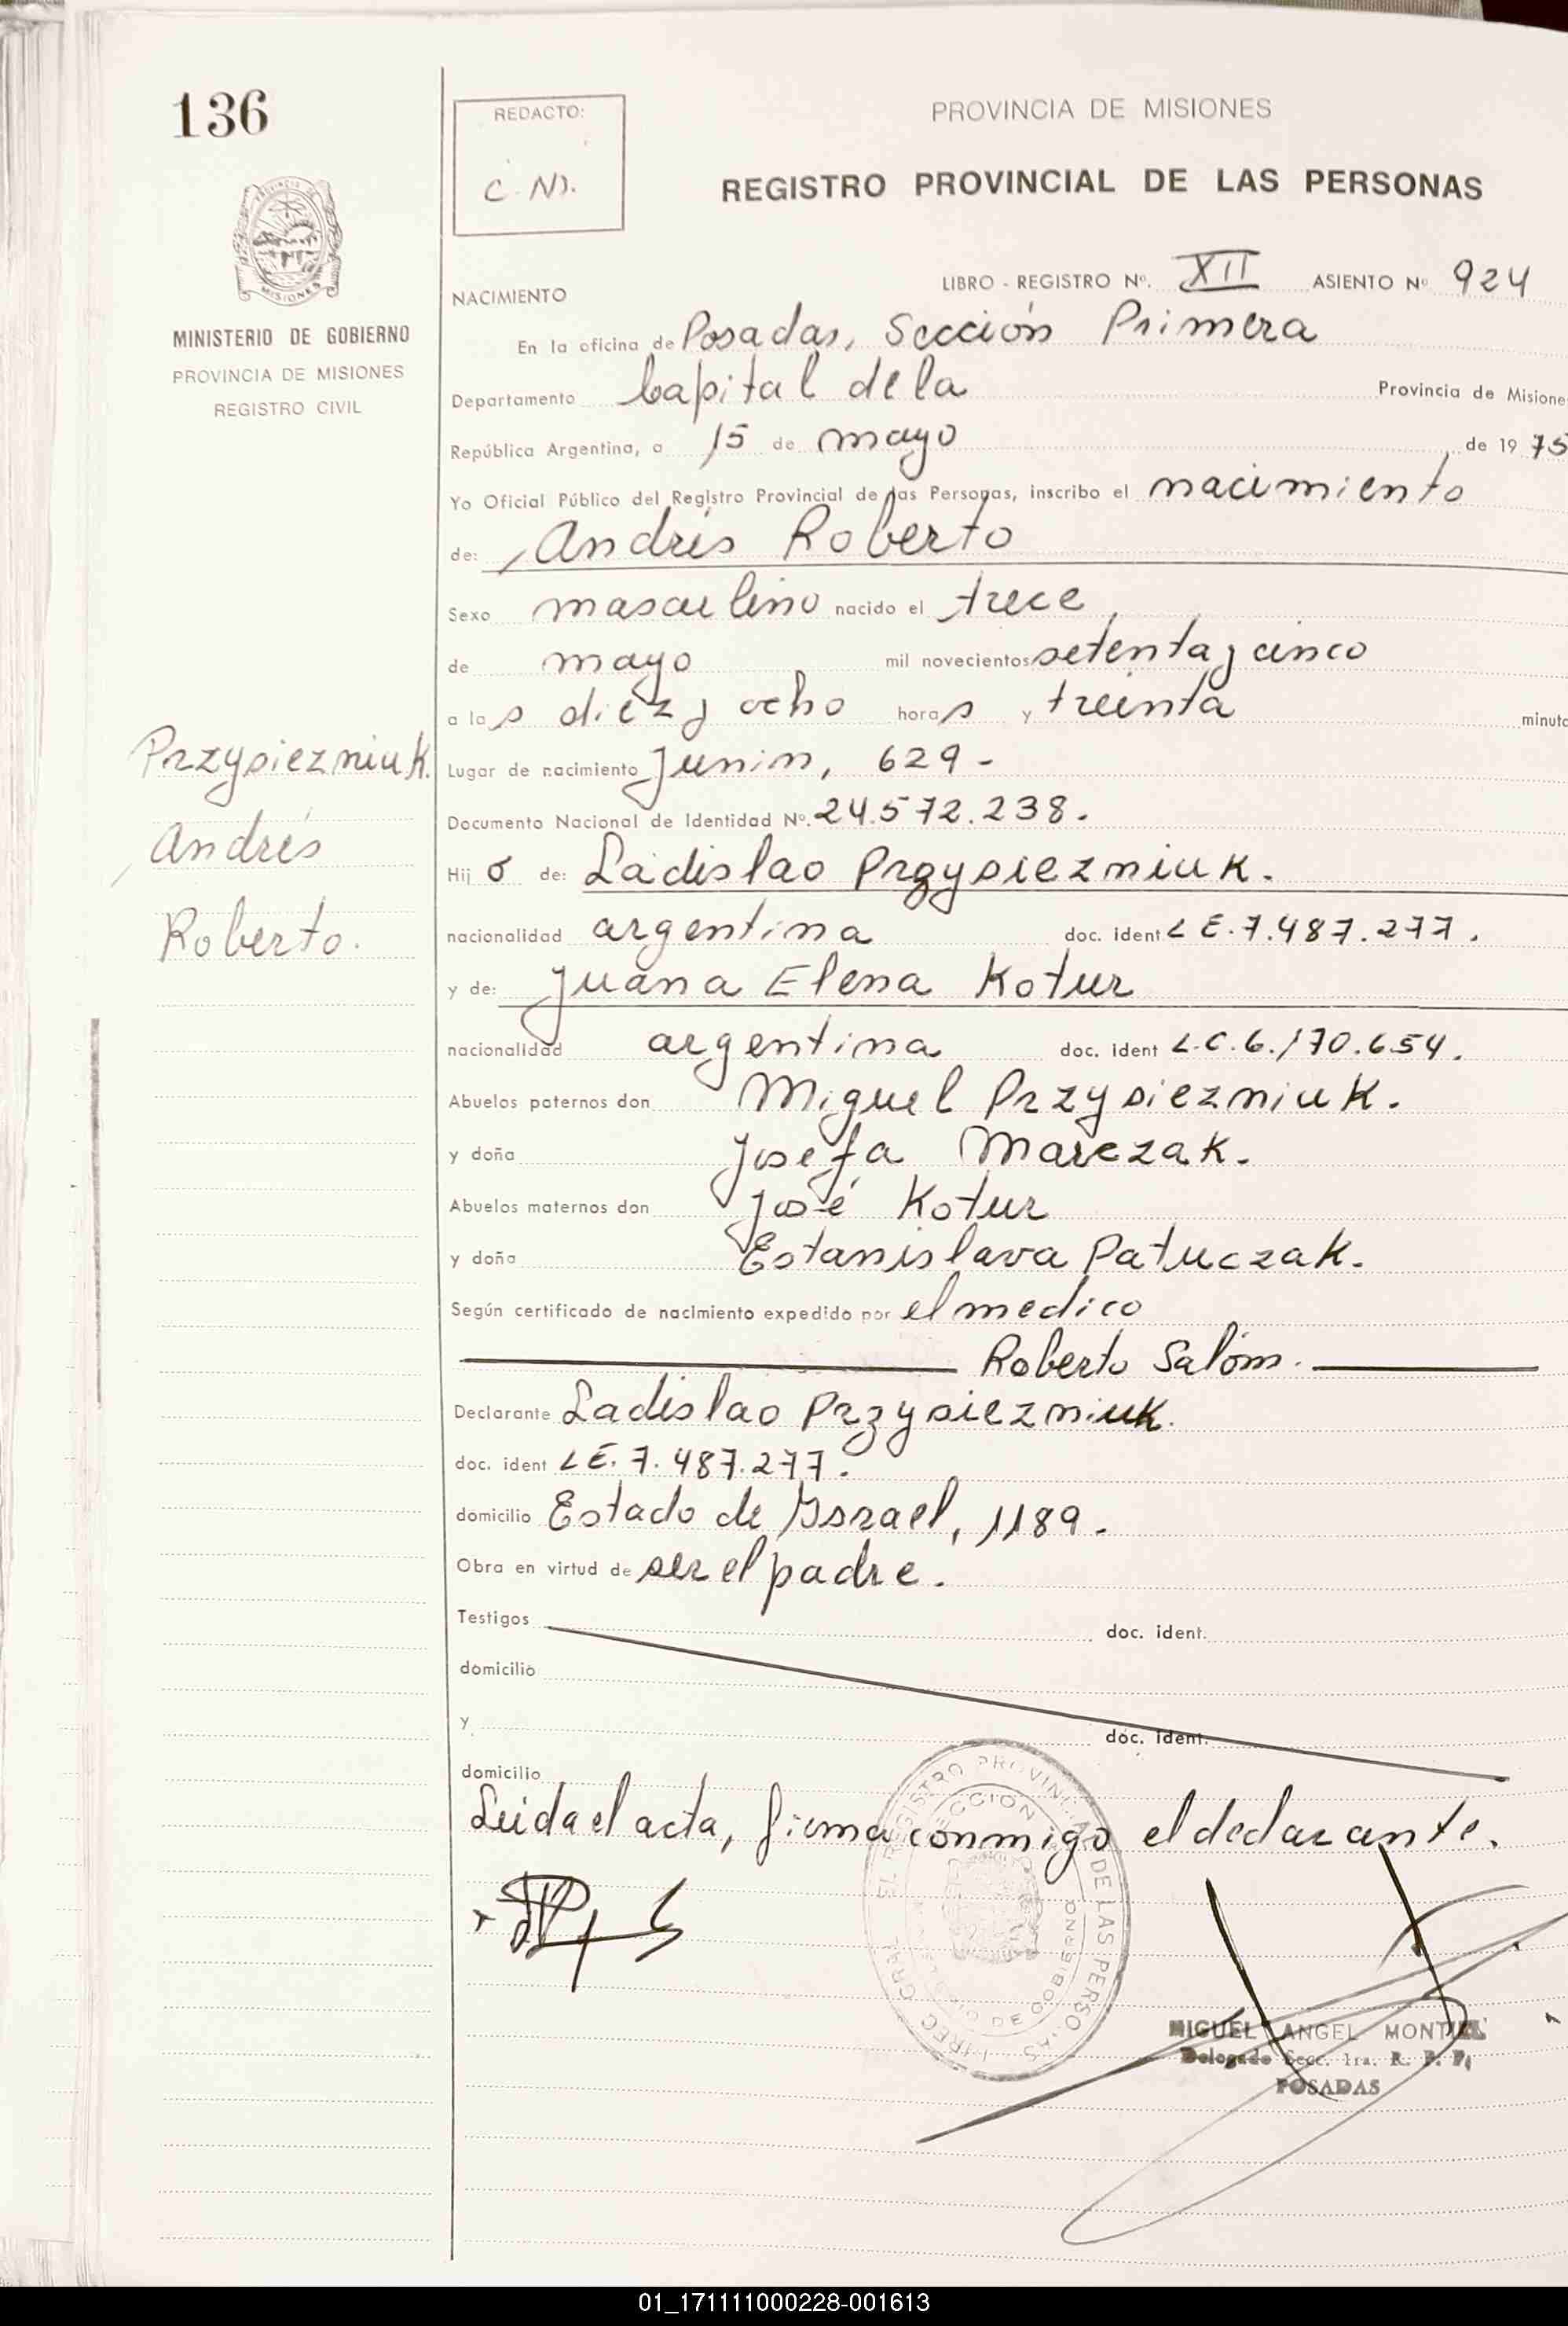 136
REDACTO:
C.N).
PROVINCIA DE MISIONES
REGISTRO PROVINCIAL DE LAS PERSONAS
PROVINCIA DE
MISIONES
MINISTERIO DE GOBIERNO
PROVINCIA DE MISIONES
REGISTRO CIVIL
NACIMIENTO
LIBRO - REGISTRO Nº. XII ASIENTO Nº 924
En la oficina de Posadas, Sección Primera
Departamento Capital de la Provincia de Misione
República Argentina, a 15 de mayo de 1975
Yo Oficial Público del Registro Provincial de las Personas, inscribo el nacimiento
de: Andrés Roberto
Sexo masculino nacido el trece
de mayo mil novecientos setenta y cinco
a las diez y ocho horas y treinta minuto
Przysiezniuk.
Andrés
Roberto.
Lugar de nacimiento Junin, 629-
Documento Nacional de Identidad Nº. 24.572.238.
Hijo de: Ladislao Przysiezniuk.
nacionalidad argentina doc. ident L E. 7.487.277.
y de: Juana Elena Kotur
nacionalidad argentina doc. ident L.C. 6.170.654.
Abuelos paternos don Miguel Przysiezniuk.
y doña Josefa Marczak.
Abuelos maternos don José Kotur
y doña Estanislava Patuczak.
Según certificado de nacimiento expedido por el medico
Roberto Salóm.
Declarante Ladislao Przysiezniuk.
doc. ident L E. 7.487.277.
domicilio Estado de Israel, 1189.
Obra en virtud de ser el padre.
Testigos doc. ident.
domicilio
y doc. ident.
domicilio
Leida el acta, firma conmigo el declarante.
DIREC. GRAL. EL REGISTRO PROVINCIAL DE LAS PERSONAS
DE GOBIERNO
MIGUEL ANGEL MONTIEL
Delegado Secc. 1ra. R. P. P.
POSADAS
01_171111000228-001613